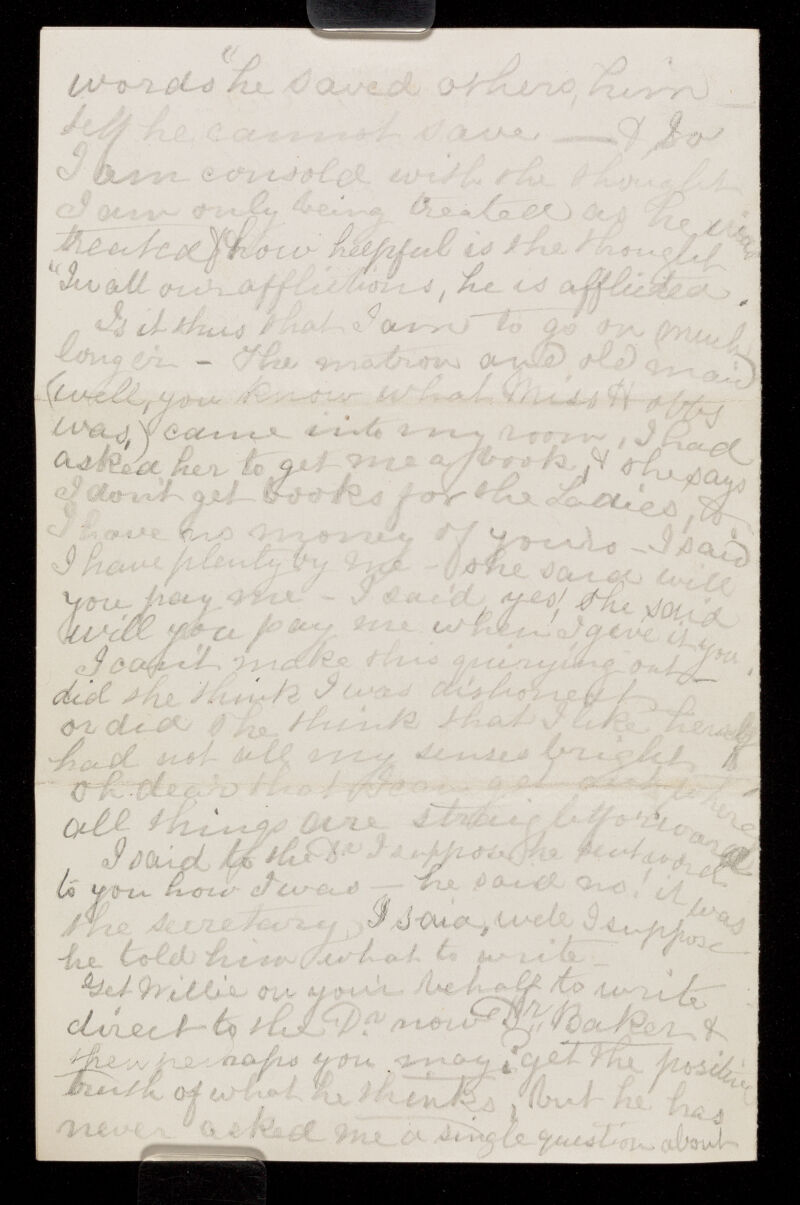 words "he saved others, him
self he cannot save — & so
I am consold with the thought
I am only being treated as he was
treated & how helpful is the thought
"In all our afflictions, he is afflicted.
Is it thus that I am to go on much
longer – The matron and old maid
(well, you know what Miss Hobbs
was,) came into my room, I had
asked her to get me a book, & she says
I don't get books for the Ladies, &
I have no money of yours – I said
I have plenty by me – she said will
you pay me – I said, yes! she said
will you pay me when I give it you.
I can't make this querying out –
did she think I was dishonest
or did she think that I like herself
had not all my senses bright
oh dear that I can get out where
all things are straightforward
I said to the Dr I suppose he sent word
to you how I was – he said no! it was
the secretary, I said, well I suppose
he told him what to write –
Get Willie on your behalf to write
direct to the Dr. now Dr. Baker &
then perhaps you may get the positive
truth of what he thinks, but he has
never asked me a single question about